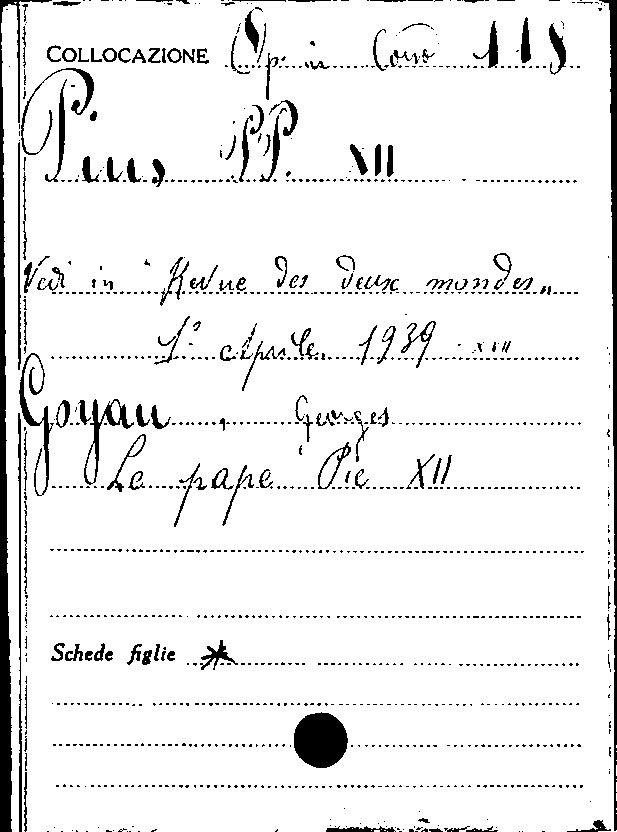 COLLOCAZIONE Op. in Corso 118
Pius PP. XII
Vedi in "Revue des deux mondes"
1° Aprile 1939 XVII
Goyau, Georges
Le pape Pie XII
Schede figlie *